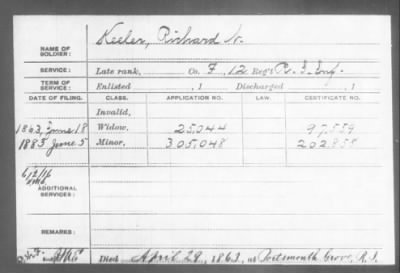 NAME OF SOLDIER: Keeler, Richard N.
SERVICE: Late rank, Co. F, 12 Reg't R. I. Inf.
TERM OF SERVICE: Enlisted , 1 Discharged , 1
DATE OF FILING. CLASS. APPLICATION NO. LAW. CERTIFICATE NO.
Invalid,
1863, June 18 Widow, 25,044 97,559
1883 June 5 Minor, 305,048 202,858
6/2/16
ADDITIONAL SERVICES:
REMARKS:
Died April 29, 1863, at Portsmouth Grove, R.I.